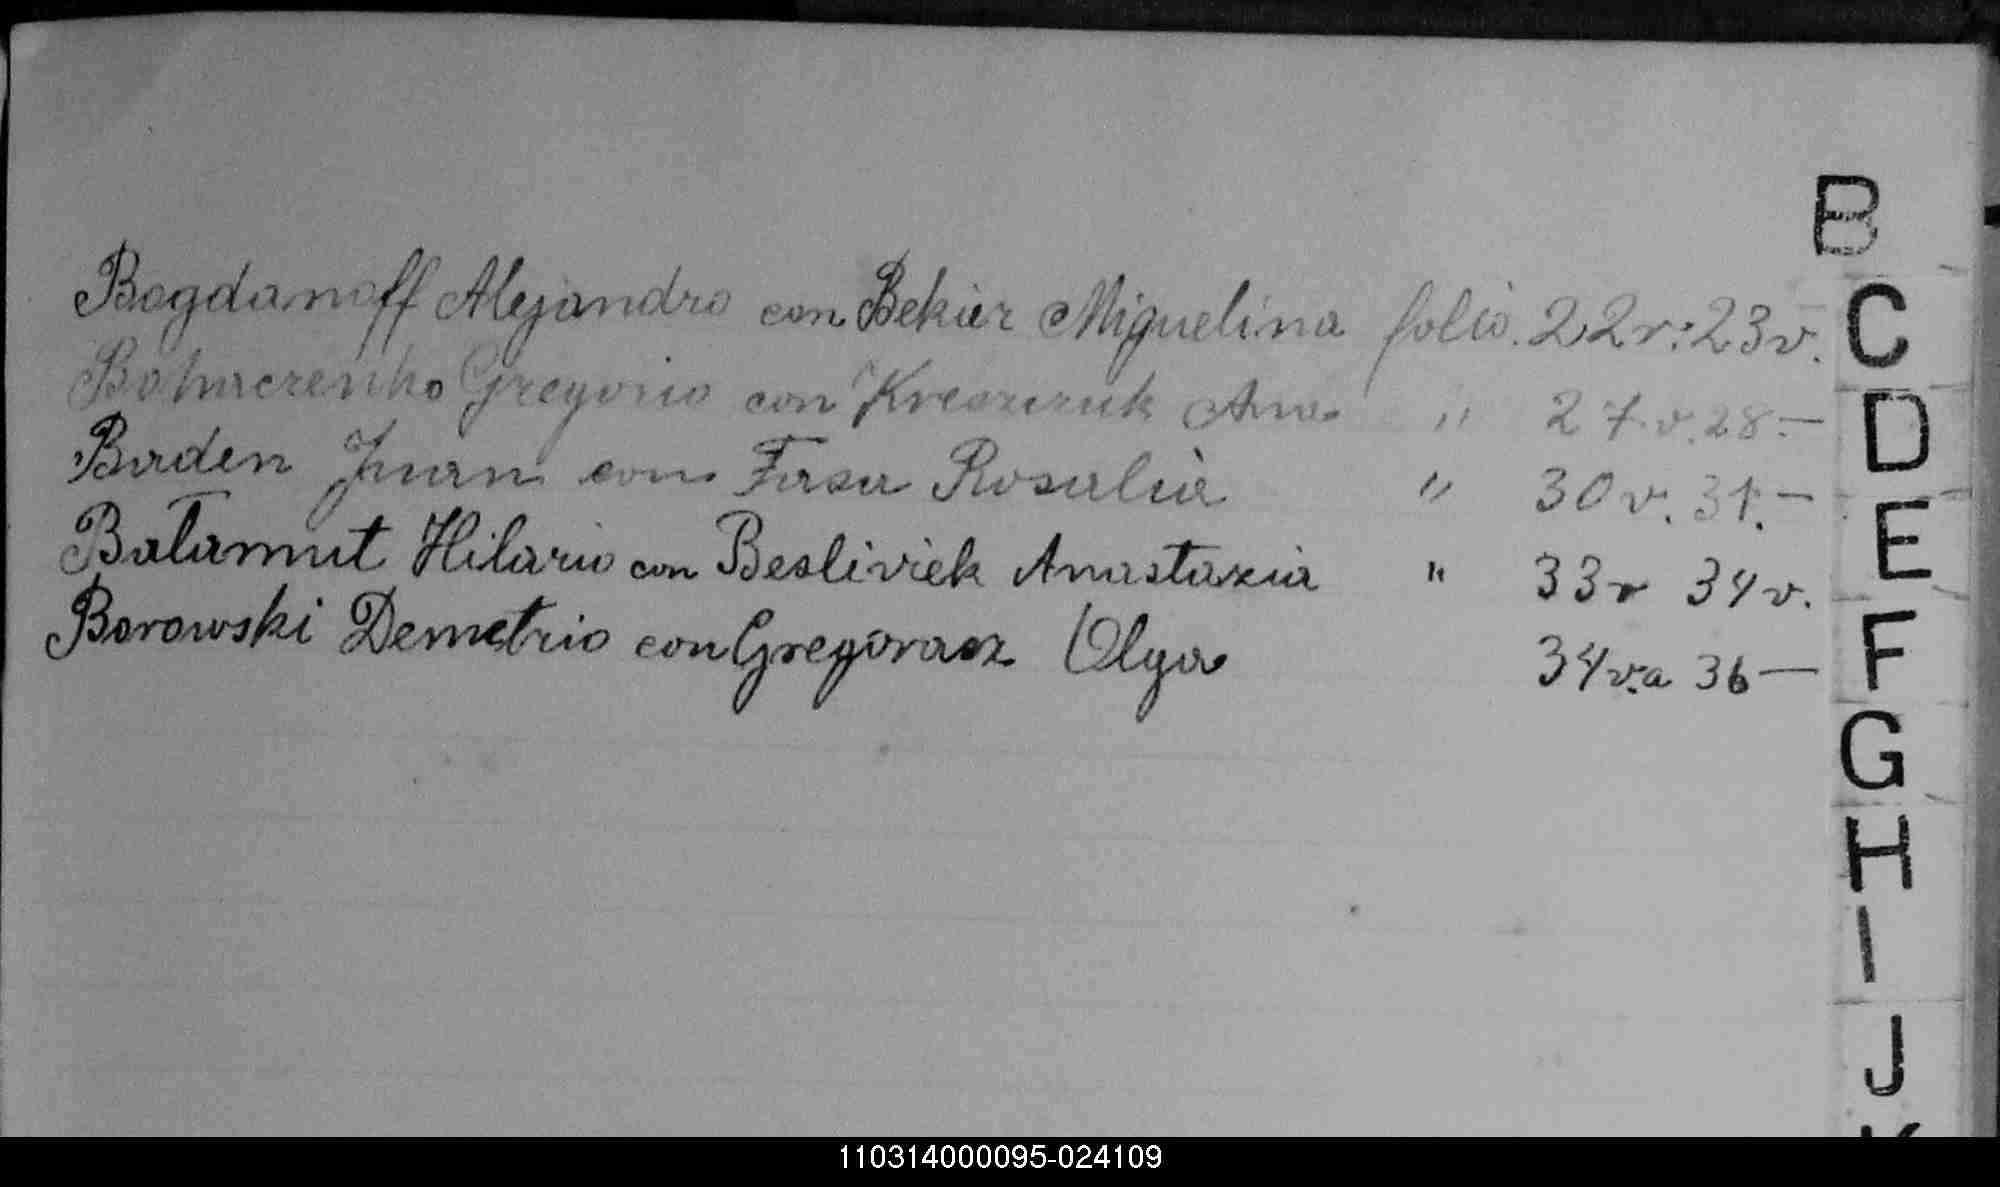 B
Bogdanoff Alejandro con Bekier Miguelina folio. 22r: 23v.
C
Gregorio con Ana " 27.v. 28.—
D
Baden Juan con Fasa Rosalia " 30v. 31.—
E
Batamut Hilario con Besliviek Anastaxia " 33r 34v.
Borowski Demetrio con Gregoracz Olga 34v.a 36—
F
G
H
I
J
110314000095-024109